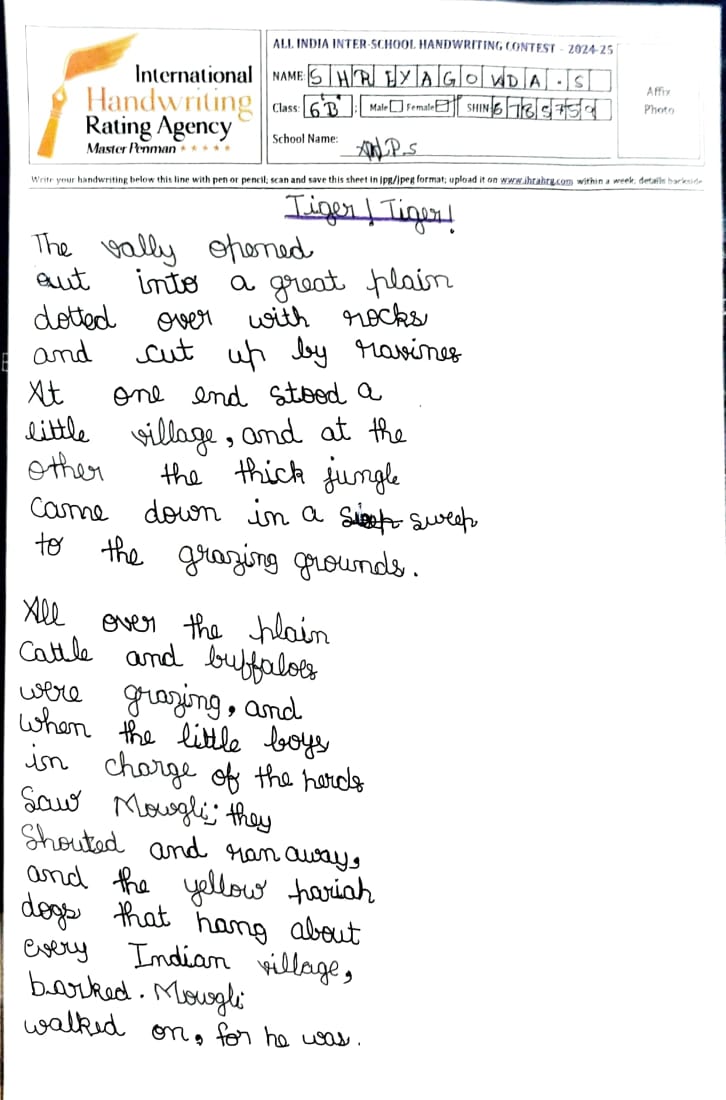 International
Handwriting
Rating Agency
Master Penman
ALL INDIA INTER-SCHOOL HANDWRITING CONTEST - 2024-25
NAME: SHREYAGOWDA.S
Class: 6'B' Male Female SHIN
School Name: P.S
Affix
Photo
Write your handwriting below this line with pen or pencil; scan and save this sheet in jpg/jpeg format; upload it on www.ihrahrg.com within a week; details backside
Tiger! Tiger!
The vally opened
out into a great plain
dotted over with rocks
and cut up by ravines
At one end stood a
little village, and at the
other the thick jungle
Came down in a sweep
to the grazing grounds.
All over the plain
Cattle and buffaloes
were grazing, and
when the little boys
in charge of the herds
Saw Mowgli; they
Shouted and ran away,
and the yellow pariah
dogs that hang about
every Indian village,
barked. Mowgli
walked on, for he was.